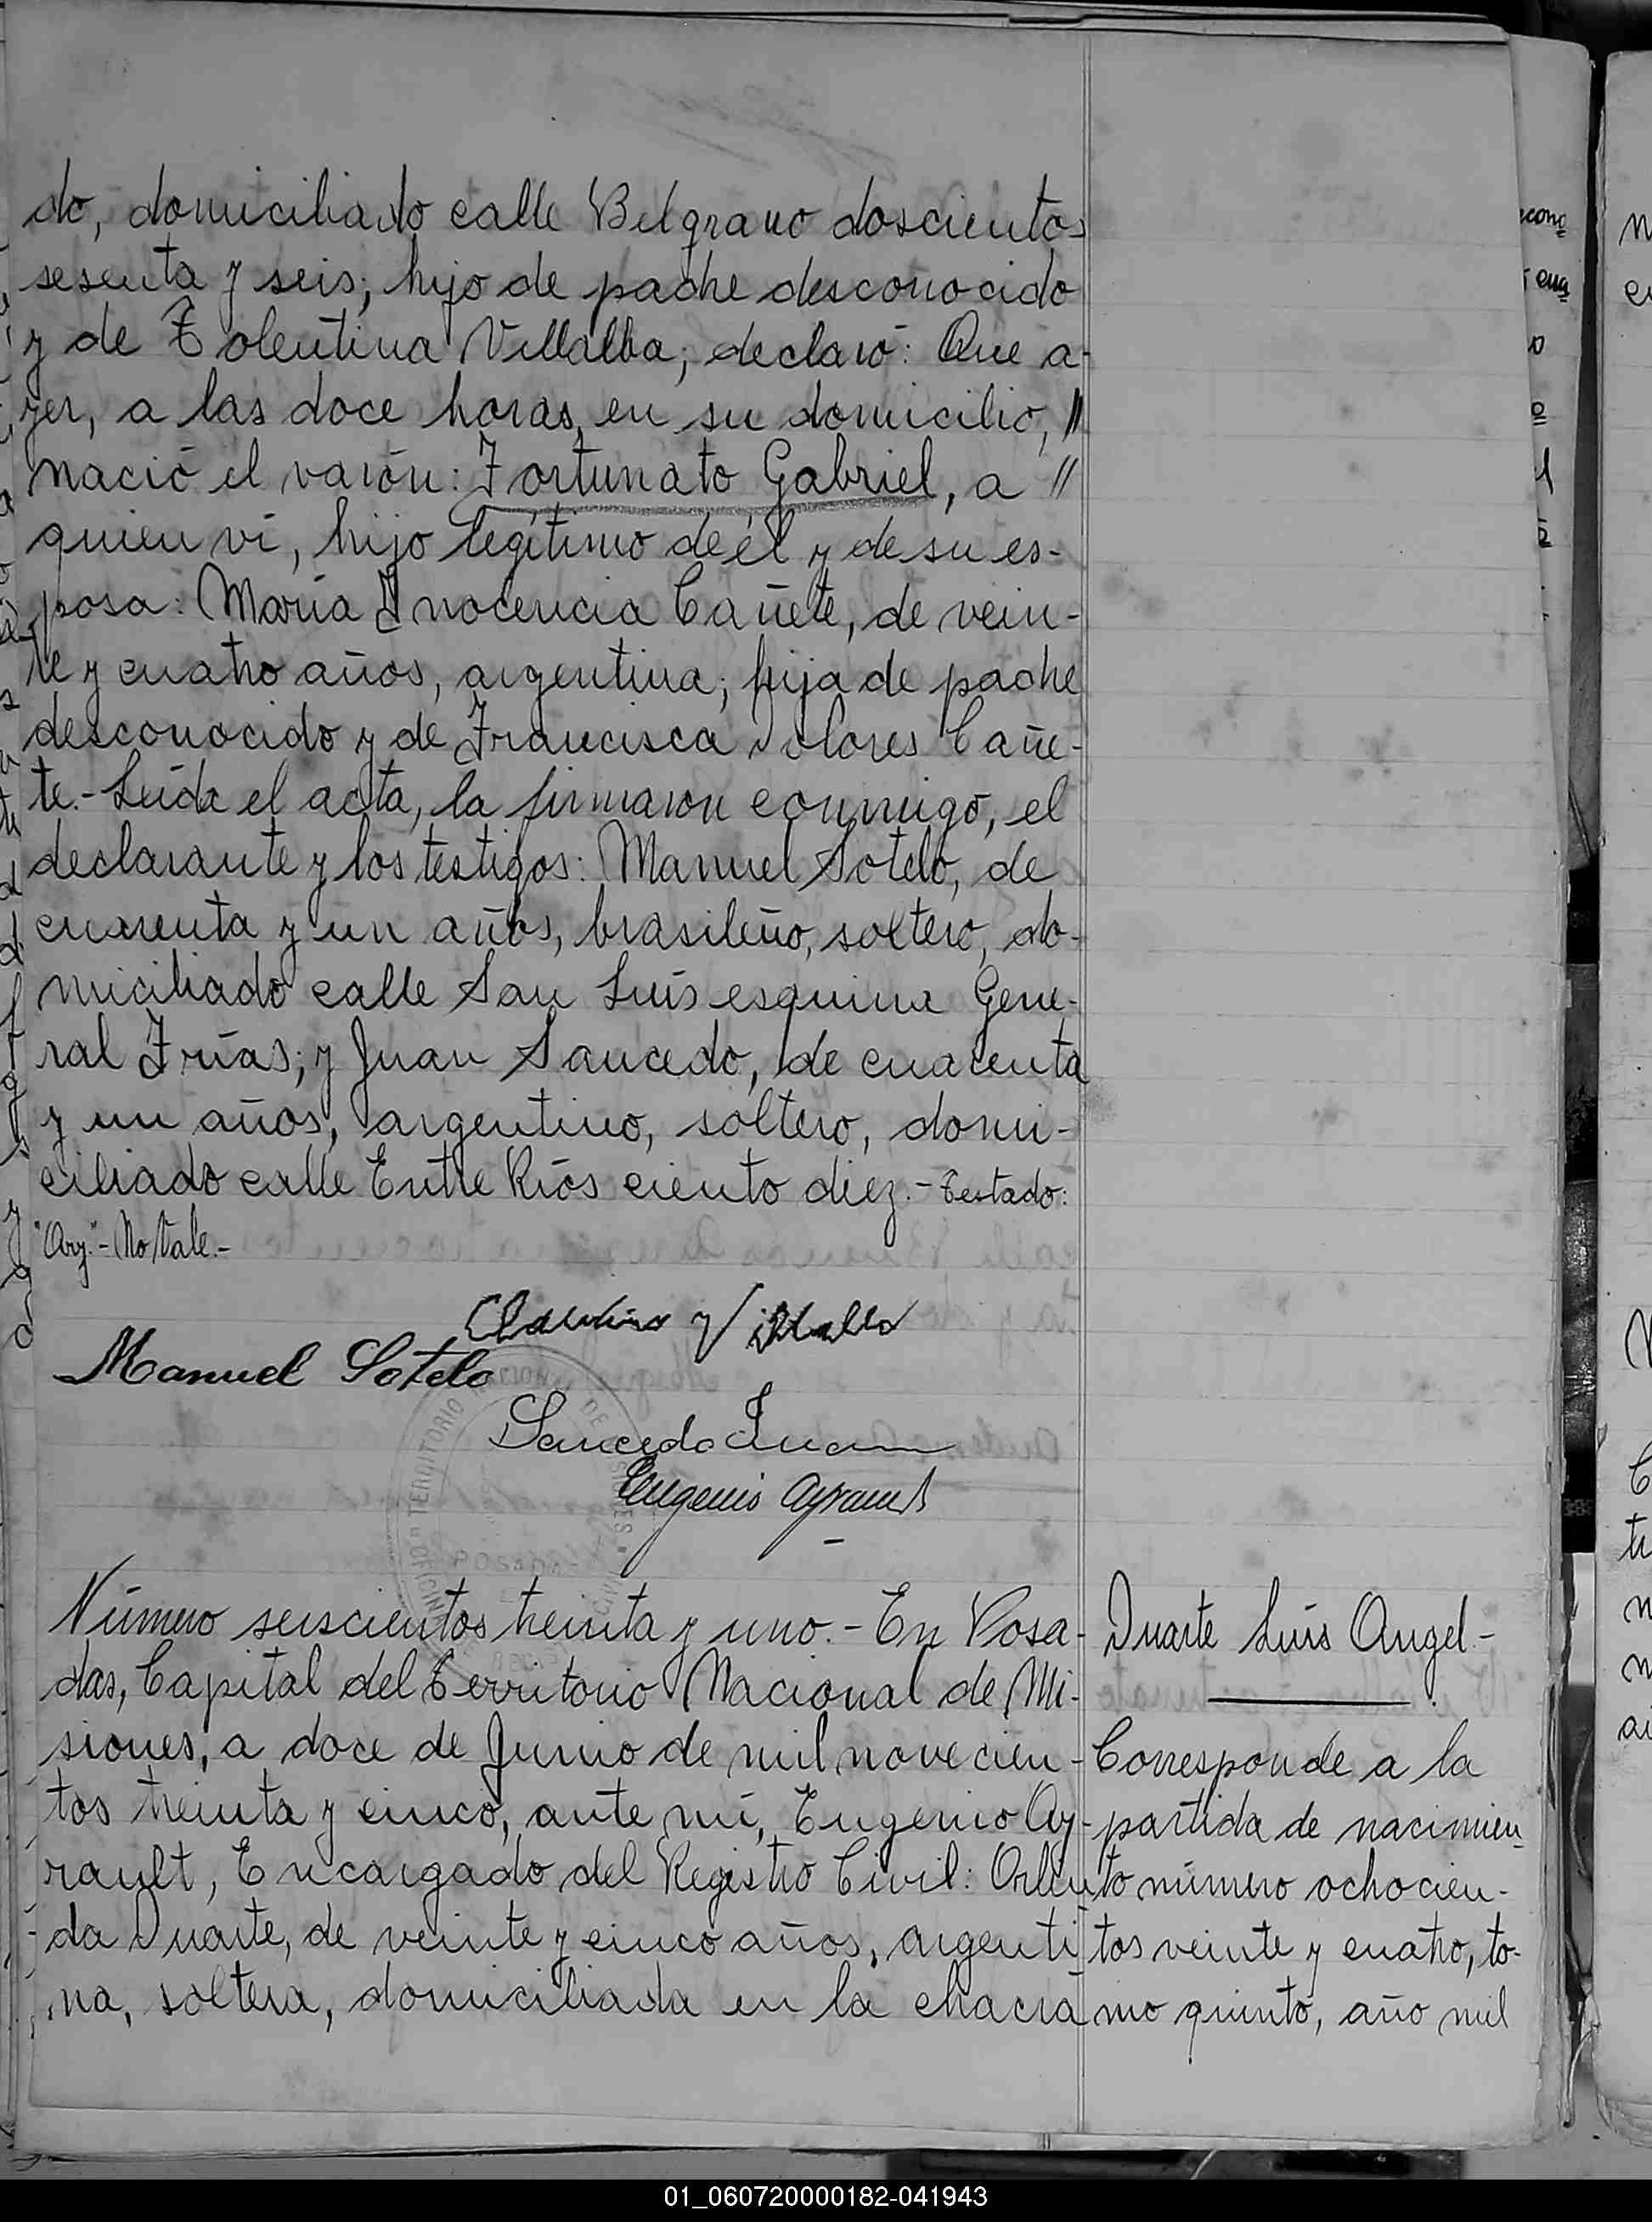 do, domiciliado calle Belgrano doscientos
sesenta y seis; hijo de padre desconocido
y de Tolentina Villalba; declaró: Que a-
yer, a las doce horas, en su domicilio, //
nació el varón: Fortunato Gabriel, a //
quien vi, hijo legítimo de él y de su es-
posa: María Inocencia Cañete, de vein-
te y cuatro años, argentina; hija de padre
desconocido y de Francisca Dolores Cañe-
te.- Leída el acta, la firmaron conmigo, el
declarante y los testigos: Manuel Sotelo, de
cuarenta y un años, brasileño, soltero, do-
miciliado calle San Luis esquina Gene-
ral Frías; y Juan Saucedo, de cuarenta
y un años, argentino, soltero, domi-
ciliado calle Entre Ríos ciento diez.- Testado:
"Arg."- No Vale.-
Villalba
Manuel Sotelo
Saucedo Juan
Eugenio Ayrault
TERRITORIO
POSADAS
Número seiscientos treinta y uno.- En Posa-
das, Capital del Territorio Nacional de Mi-
siones, a doce de Junio de mil novecien-
tos treinta y cinco, ante mí, Eugenio Ay-
rault, Encargado del Registro Civil: Orlin-
da Duarte, de veinte y cinco años, argenti
na, soltera, domiciliada en la chacra
Duarte Luis Angel.-
Corresponde a la
partida de nacimien
to número ochocien-
tos veinte y cuatro, to-
mo quinto, año mil
01_060720000182-041943